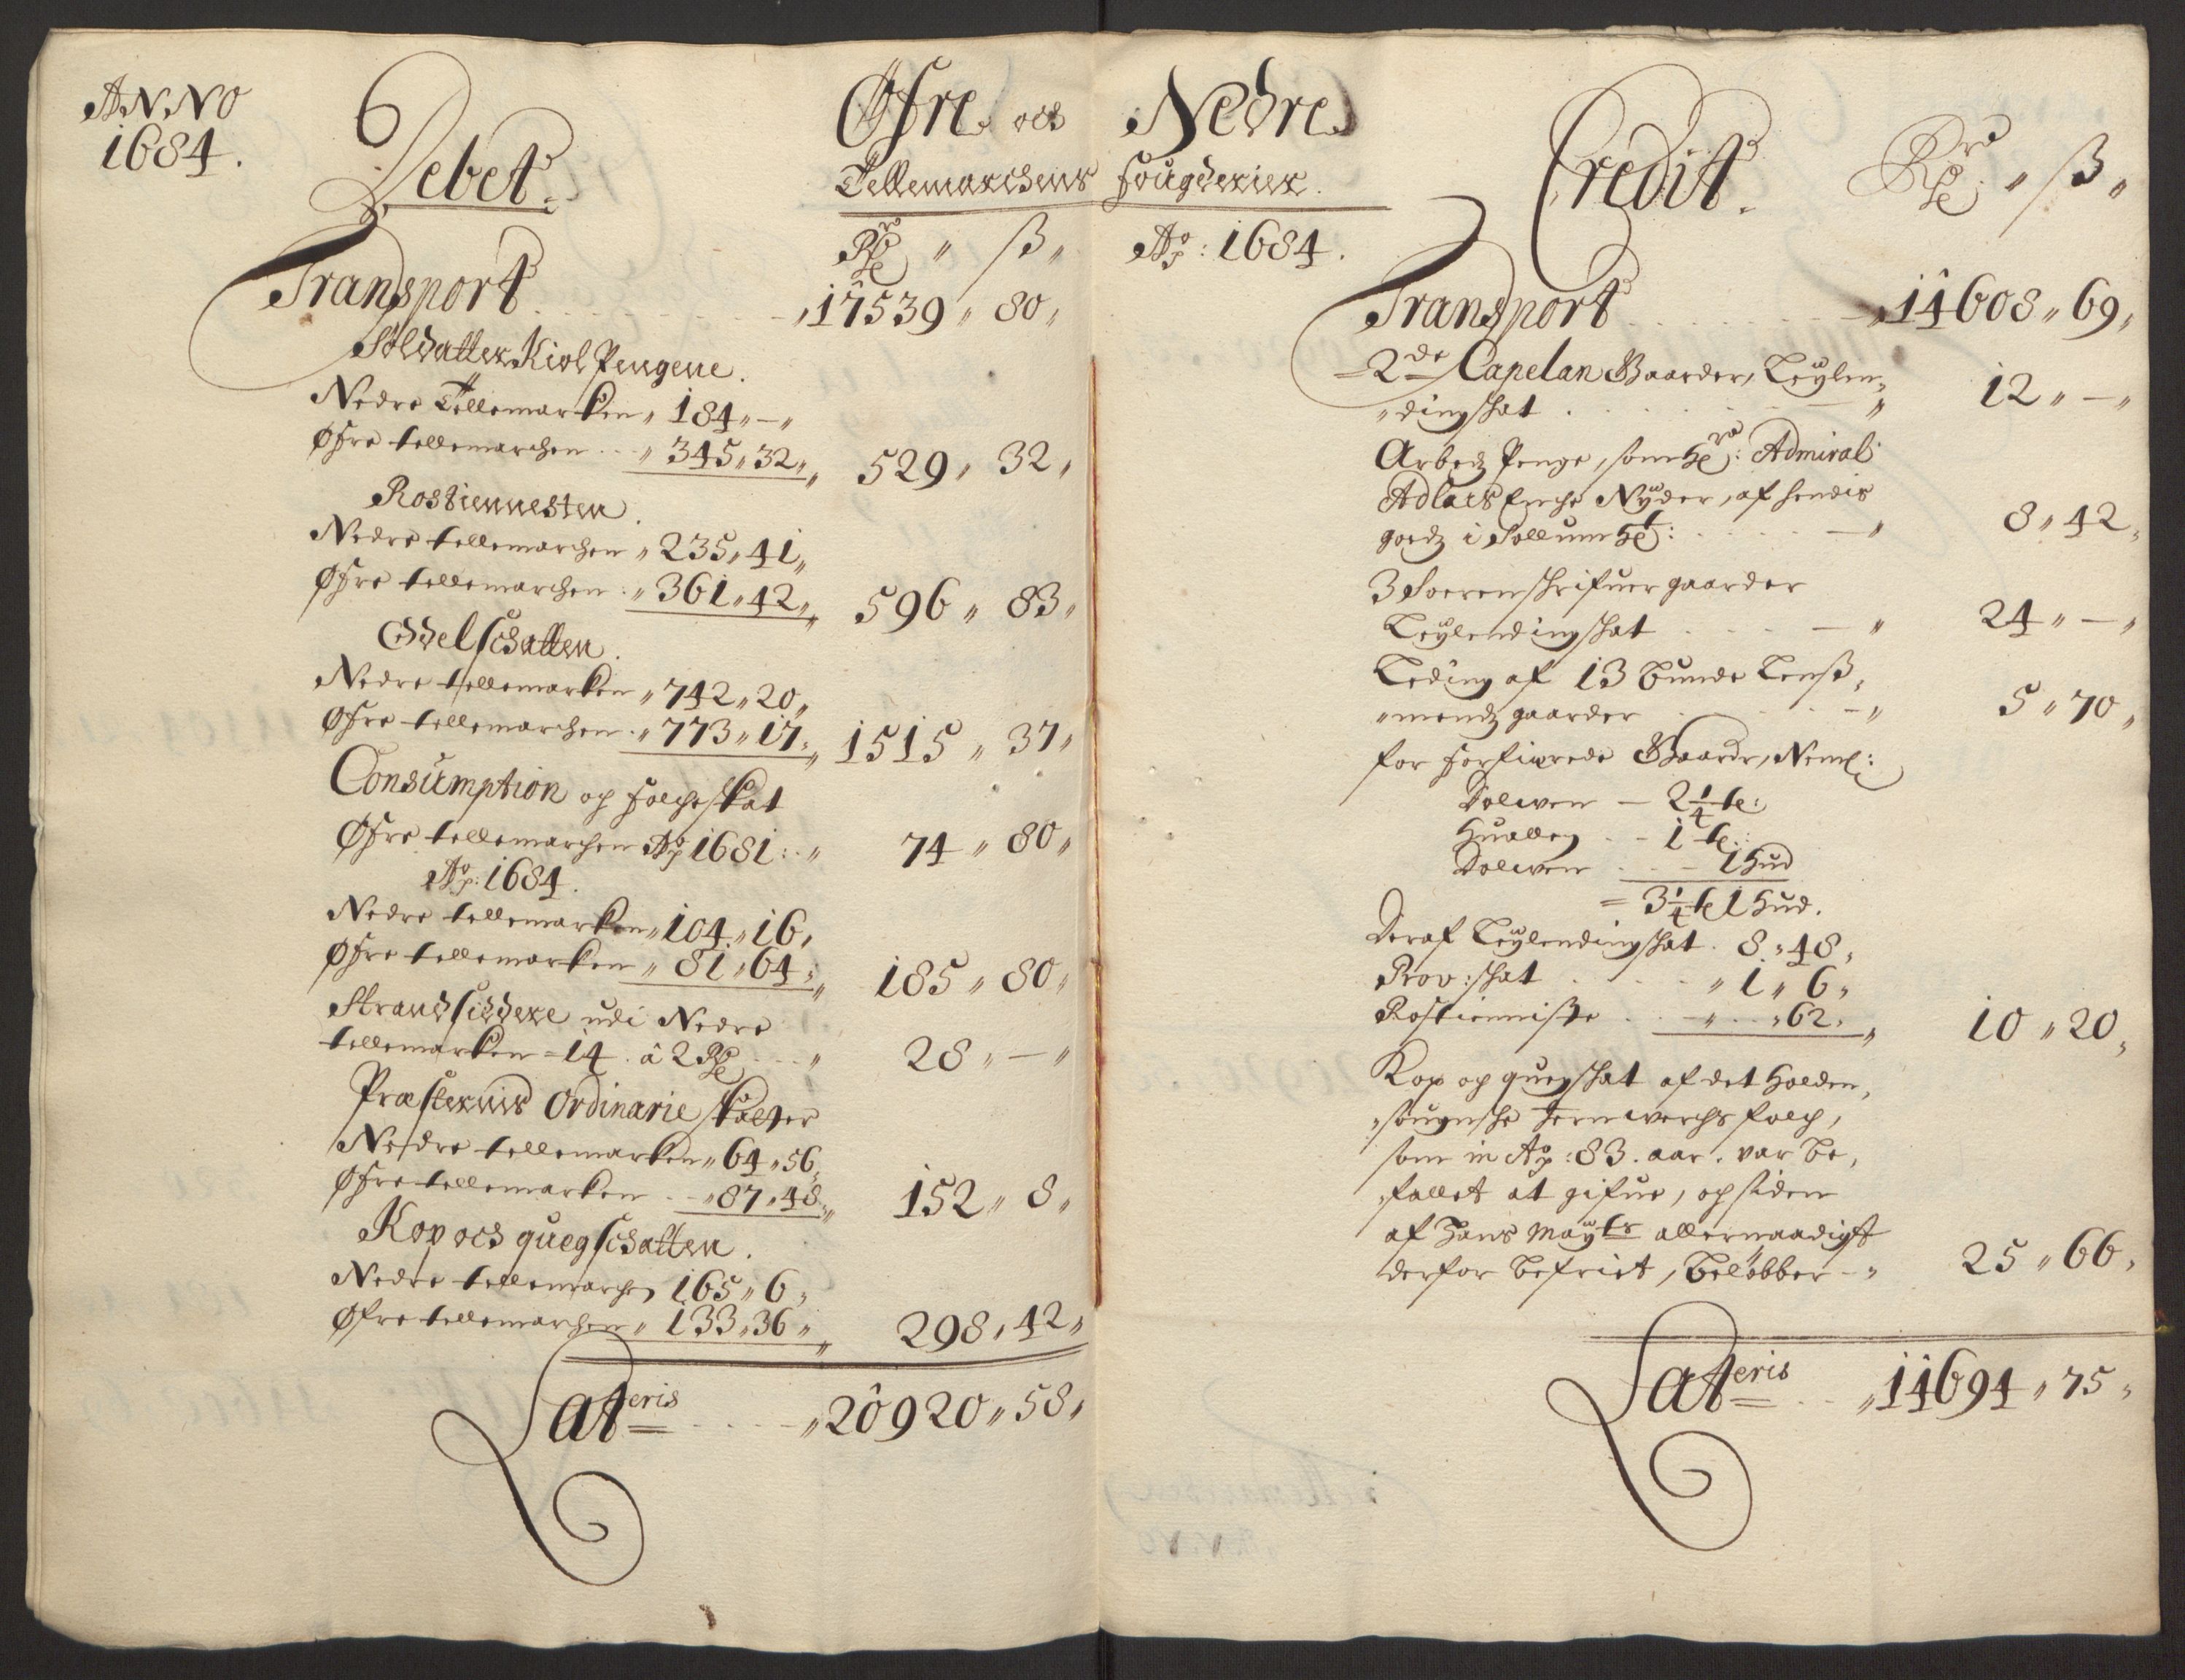 ANNO
1684.
Debet.
Øfre och Nedre
Tellemarchens fougderier.
Rdr " ß "
Ao: 1684.
Transport . . . . . . . — " 17539 " 80 "
Soldatter Kiol Pengene.
Nedre Tellemarken " 184 " — "
Øfre tellemarchen . . " 345 " 32 " " 529 " 32 "
Rostiennesten.
Nedre tellemarchen " 235 " 41 "
Øfre tellemarchen : " 361 " 42 " " 596 " 83 "
Odelschatten.
Nedre tellemarken " 742 " 20 "
Øfre tellemarchen . " 773 " 17 " " 1515 " 37 "
Consumption og folcheskat
Øfre tellemarchen Ao 1681 : . " 74 " 80 "
Ao: 1684.
Nedre tellemarken " 104 " 16 "
Øfre tellemarken " 81 " 64 " " 185 " 80 "
Strandsiddere udi Nedre
tellemarken = 14 . â 2 Rdr . . . " 28 " — "
Præsternis Ordinarie skatter
Nedre tellemarken " 64 " 56 "
Øfre tellemarken . — " 87 " 48 " " 152 " 8 "
Kop och quegschatten.
Nedre tellemarchen 165 " 6 "
Øfre tellemarchen " 133 " 36 " " 298 " 42 "
Lateris . . . . — " 20920 " 58 "
Credit.
Rdr " ß "
Transport . . . . . . — " 14608 " 69 "
= 2de Capelan Gaarder, Leylen "
" dingshat . . . . . — " 12 " — "
Arbedz Penge, som Hr: Admiral
Adlers Enche Nyder, af hendis
godz i Sollum Hl: . . . . — " 8 " 42 "
3 Soerenschrifuer gaarder
Leylendingshat . . . — " 24 " — "
Leding af 13 bunde Lenß "
" mendz gaarder . . . . — " 5 " 70 "
for forfierede Gaardr, Neml:
Dolwen — 2 1/4 tl:
Hualleg . — 1 tl:
Dolwen . . — 1 Hud
= 3 1/4 tl 1 Hud.
Deraf Leylendingshat . 8 " 48 "
Prov: shat . . . . " 1 " 6 "
Rostienniste . . — " . . " 62 " " 10 " 20 "
Kop og quegshat af det Holden "
" sougnshe Jernwerchs folch,
som in Ao: 83. aar. var be "
" fallet at gifue, og siden
af Hans Mayts allernaadigst
derfor befriet, belöbber — " 25 " 66 "
Lateris . . . " 14694 " 75 "